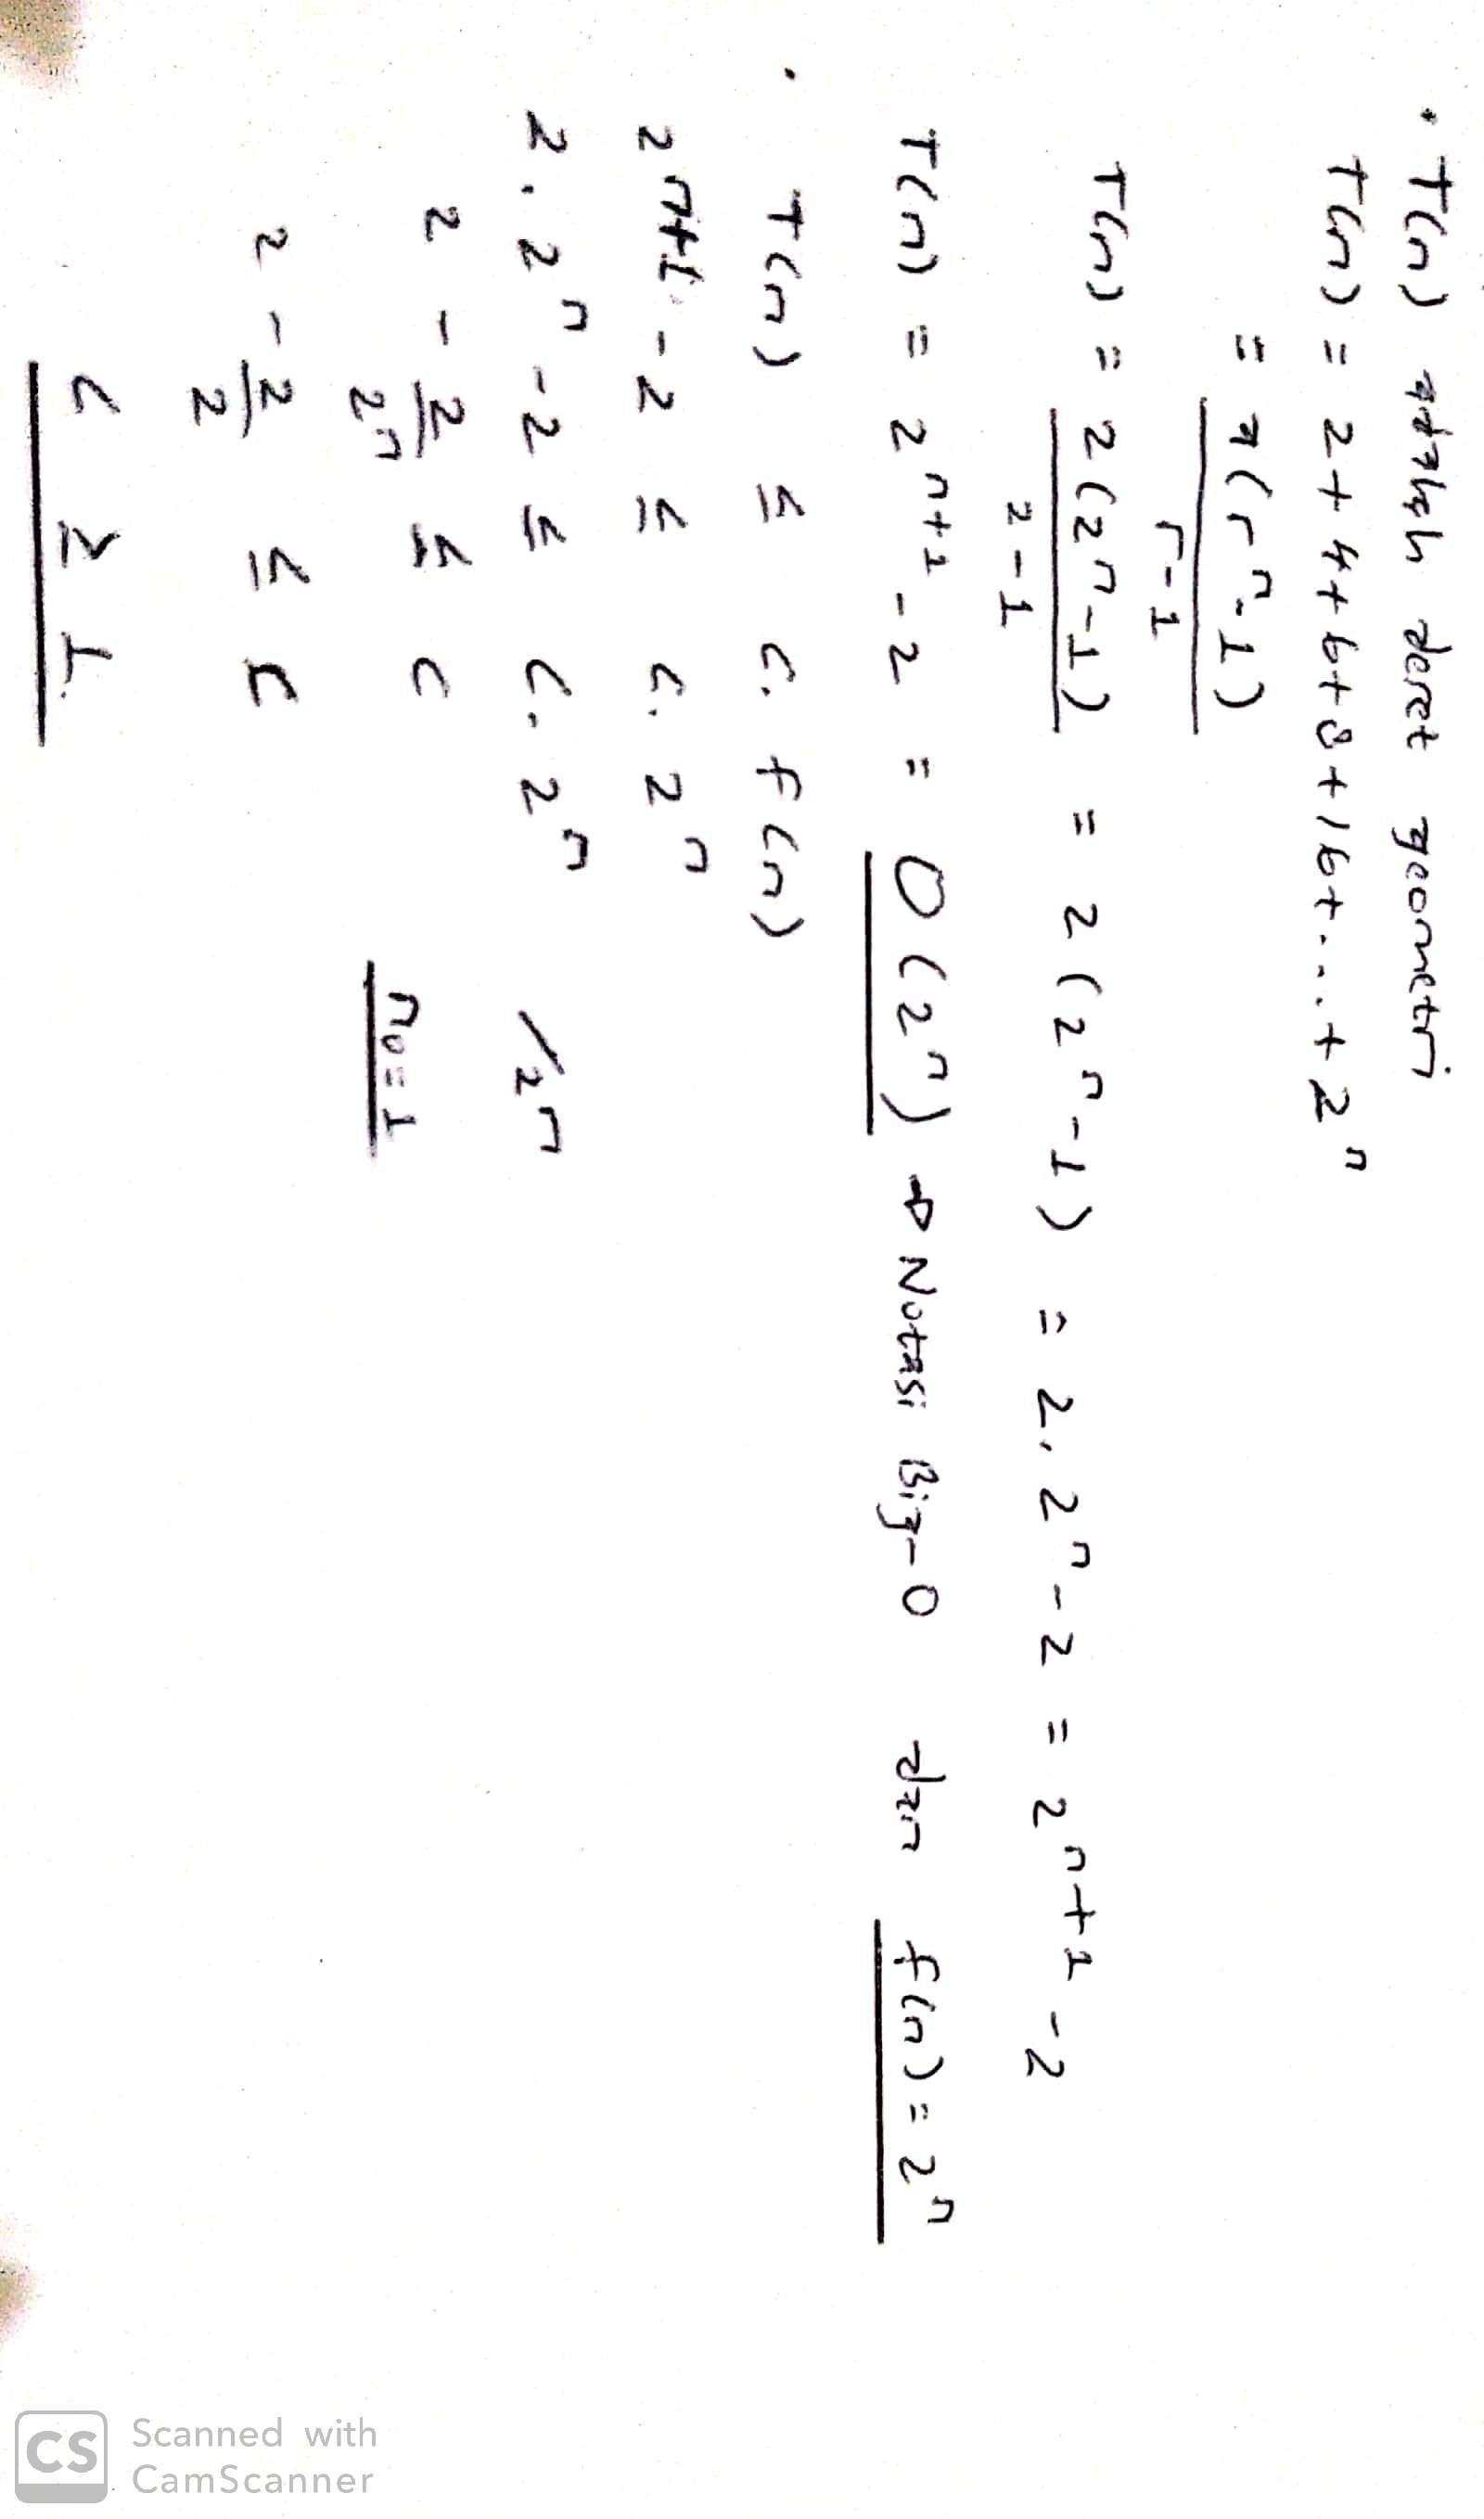 • T(n) adalah deret geometri
T(n) = 2 + 4 + 6 + 8 + 16 + .... + 2ⁿ
= a(rⁿ - 1)
r - 1
T(n) = 2(2ⁿ - 1) = 2(2ⁿ - 1) = 2.2ⁿ - 2 = 2ⁿ⁺¹ - 2
2 - 1
T(n) = 2ⁿ⁺¹ - 2 = O(2ⁿ) → Notasi Big-O dan f(n) = 2ⁿ
• T(n) ≤ c. f(n)
2ⁿ⁺¹ - 2 ≤ c. 2ⁿ
2.2ⁿ - 2 ≤ c. 2ⁿ /2ⁿ
2 - 2/2ⁿ ≤ c n₀ = 1
2 - 2/2 ≤ c
c ≥ 1.
CS Scanned with
CamScanner